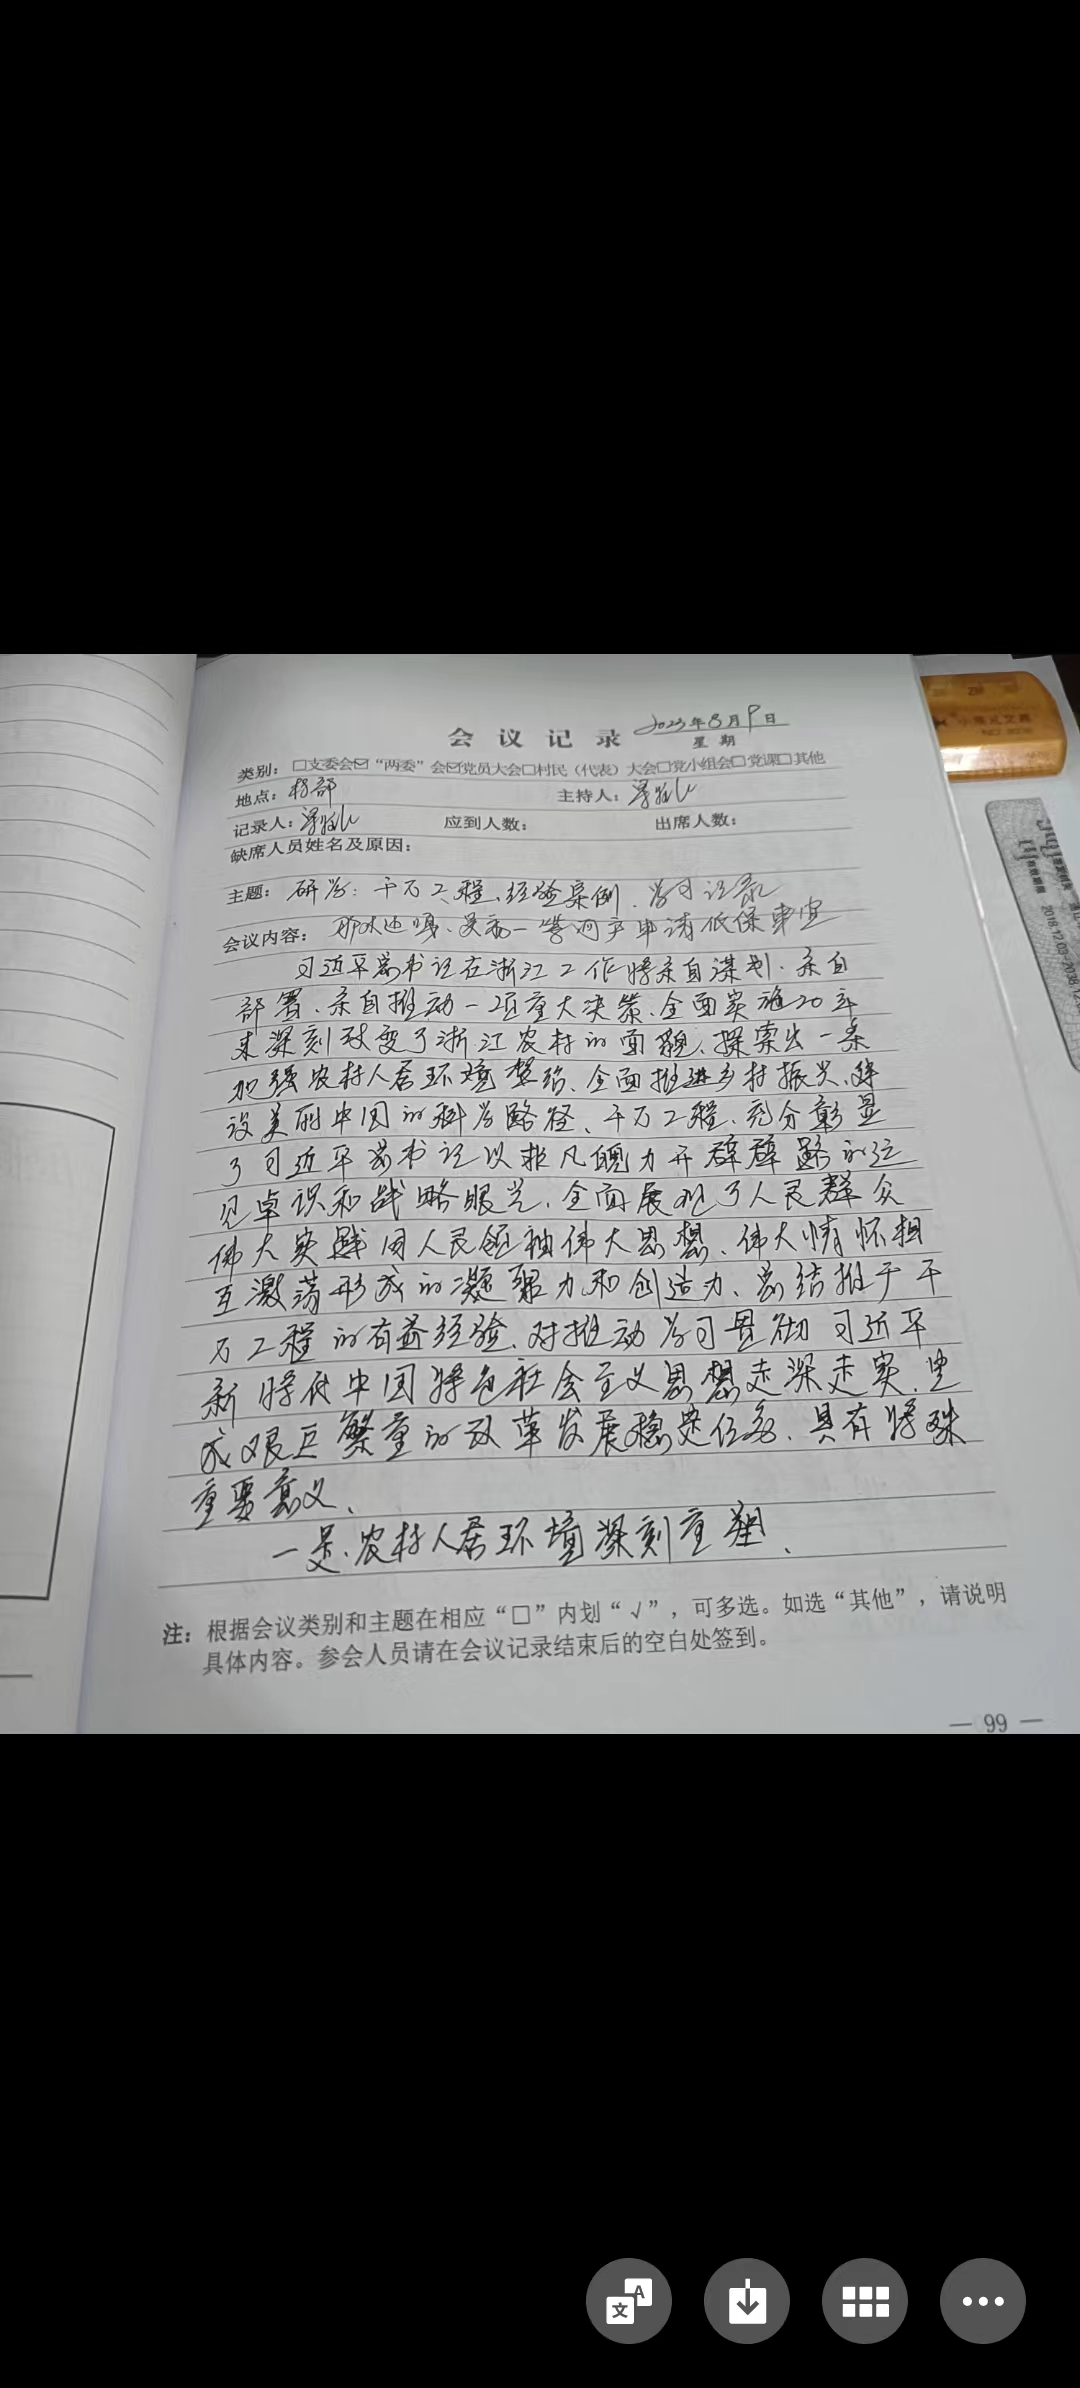 会议记录 2023年8月9日
星期
类别：□支委会☑“两委”会☑党员大会□村民（代表）大会□党小组会□党课□其他
地点：村部 主持人：
记录人： 应到人数： 出席人数：
缺席人员姓名及原因：
主题：研学：千万工程、经验案例、学习记录
会议内容： 一等 户申请低保事宜
习近平总书记在浙江工作时亲自谋划、亲自
部署、亲自推动一项重大决策、全面实施20年
来深刻改变了浙江农村的面貌、探索出一条
加强农村人居环境整治、全面推进乡村振兴、建
设美丽中国的科学路径、千万工程、充分彰显
了习近平总书记以非凡魄力开辟 路的远
见卓识和战略眼光、全面展现了人民群众
伟大实践同人民领袖伟大思想、伟大情怀相
互激荡形成的凝聚力和创造力、总结推于千
万工程的有益经验、对推动学习贯彻习近平
新时代中国特色社会主义思想走深走实、完
成艰巨繁重的改革发展稳定任务、具有特殊
重要意义、
一是、农村人居环境深刻重塑、
注：根据会议类别和主题在相应“□”内划“√”，可多选。如选“其他”，请说明
具体内容。参会人员请在会议记录结束后的空白处签到。
— 99 —